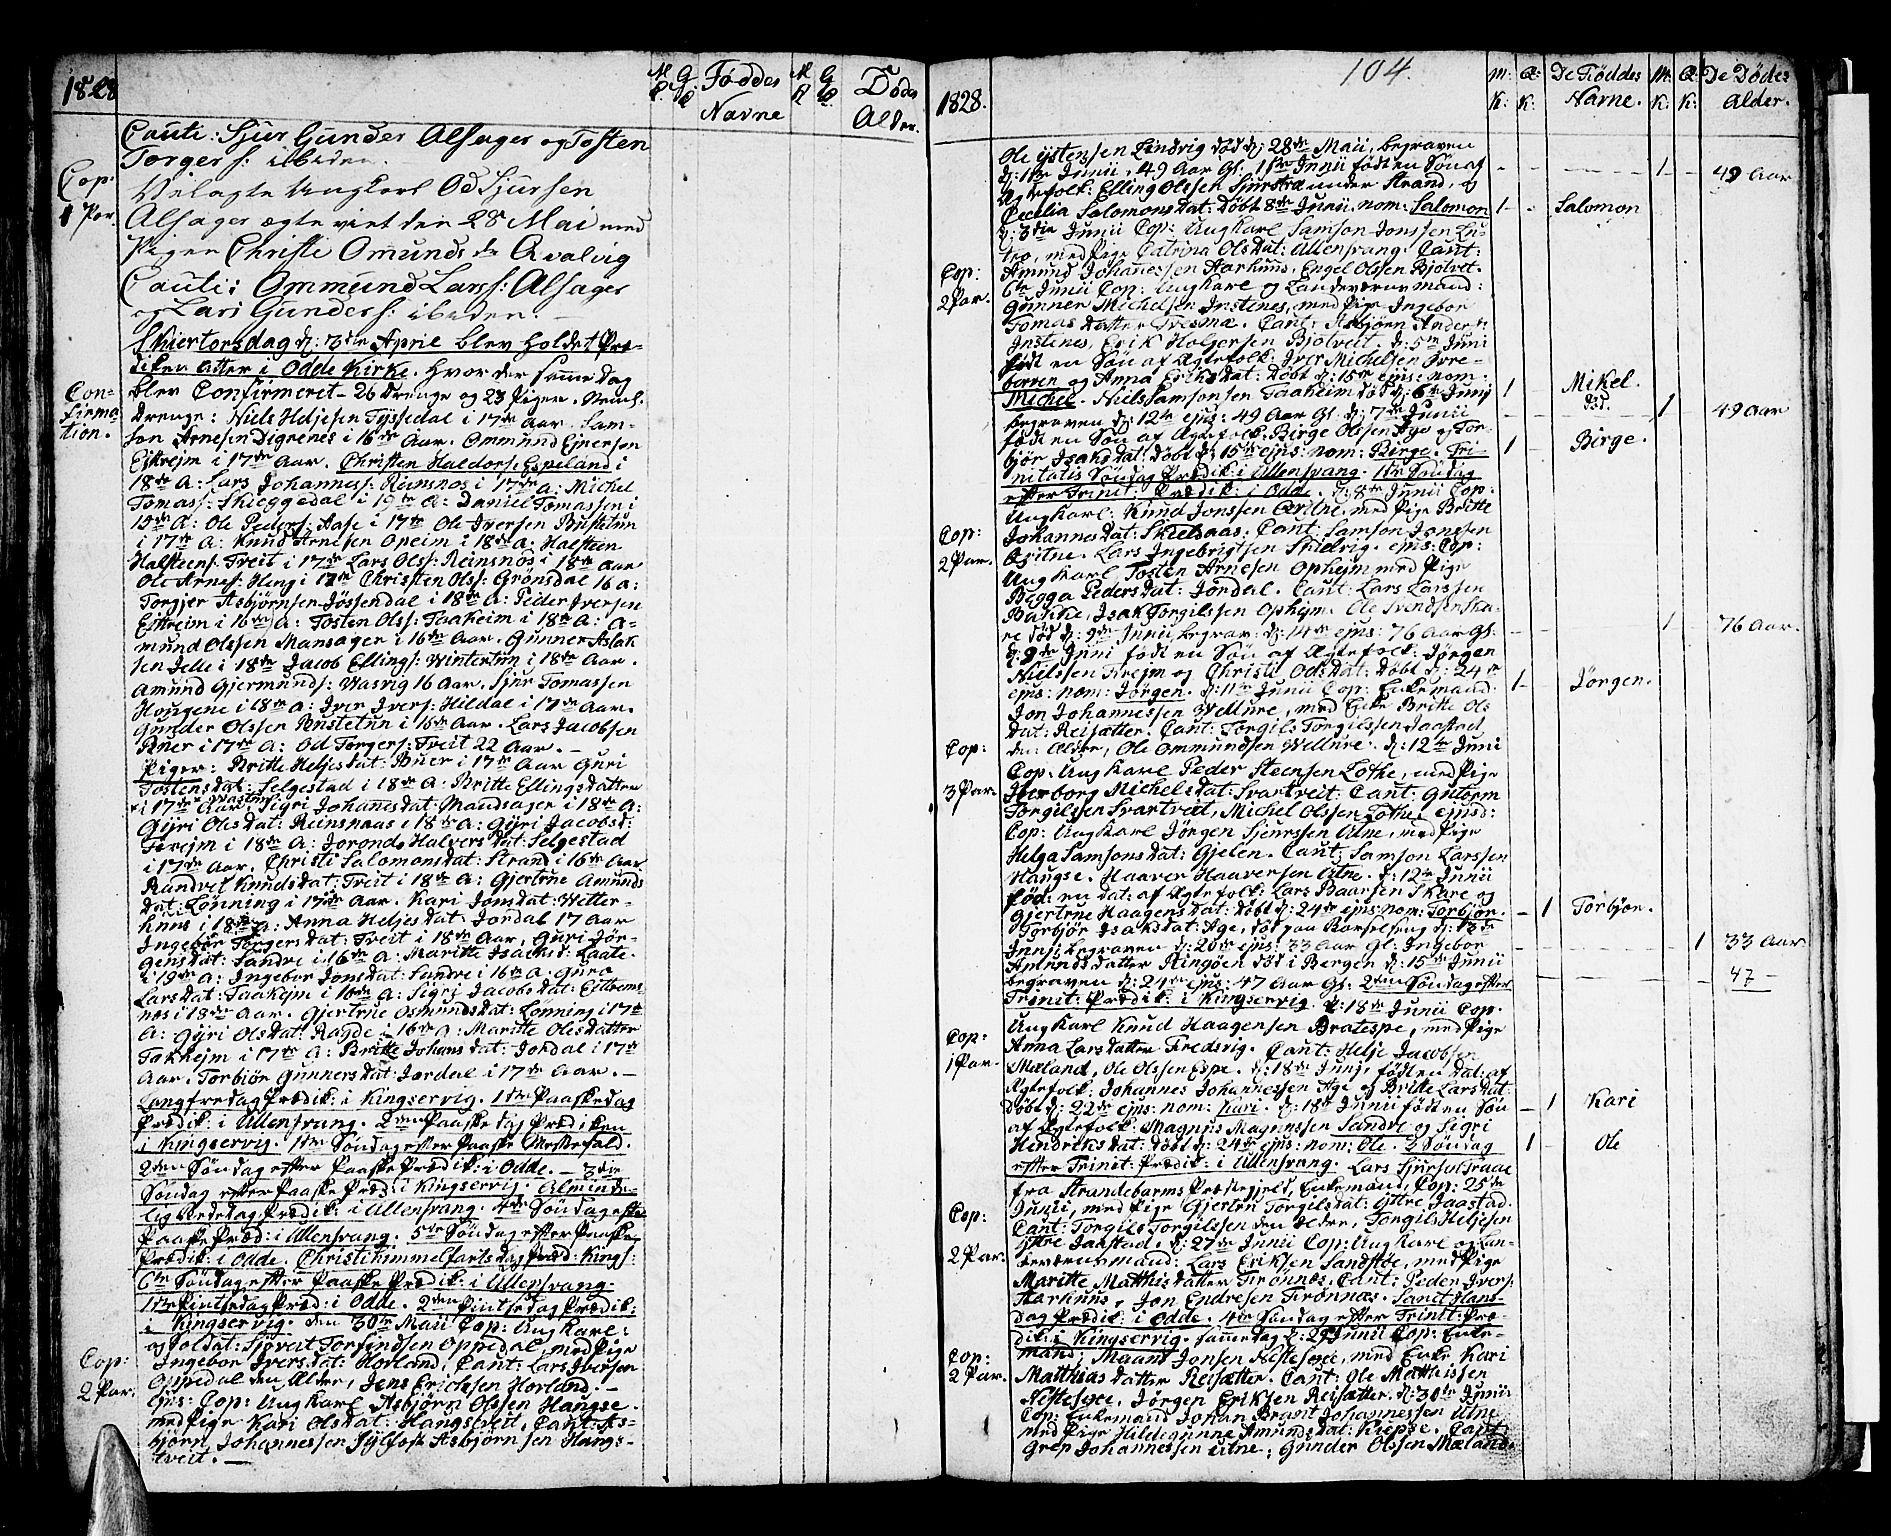 1828
M: G:
K: K:
Føddes
Navne
M G
K K
Døde
Alder.
Cauti: Sjur Gunders Alsager og Tosten
Torgers: ibiden.
Cop:
1 Par.
Velagte Ungkarl Od Sjursen
Alsager ægte viet den 28 Mai med
Pigen Christi Omunds dr Qvalvig
Cauti: Ommund Larss: Alsager
og Lars Gunders: ibiden: —
Skiertorsdag d: 3die Aprie blev holdet Præ-
diken Atter i Odde Kirke. hvor der samme dag
Con-
firma-
tion.
blev Confirmeret - 26 Drenge og 23 Piger.
Drenge: Niels Heljesen Tyssedal i 17de Aar. Sam-
son Arnesen Digrenes i 16de Aar. Ommund Ejnersen
Ejtrejm i 17de Aar. Christen Haldors: Espeland i
18de A: Lars Johannes: Reinsnos i 17de A: Michel
Tomass: Skieggedal i 19de A: Daniel Tomassen i
19de A: Ole Peders: Aase i 17de Ole Iversen Bustetun
i 17de A: Knud Arnesen Opeim i 18de A. Halsteen
Halsteens: Freit i 17de Lars Olss: Reinsnos i 18de Aar
Ole Arnes: Heng i 17de Christen Olss: Grønsdal 16 A:
Torgjer Asbjørnsen Jøssendal i 18de A: Peder Iversen
Eitreim i 16de A: Tosten Olss: Taaheim i 18de A: A-
mund Olssen Mansager i 16de Aar. Gunner Aslak
sen Jelle i 18de Jacob Ellings: Wintertun i 18de Aar.
Amund Gjermunds: Wasvig 16 Aar. Sjur Tomassen
Hougene i 18de A: Iver Ivers: Hildal i 17de Aar.
Gunder Olssen Bustetun i 16de Aar. Lars Jacobsen
Buer i 17de A: Od Torgers: Freit 22 Aar. —
Piger: Britte Heljesdat: Buer i 17de Aar Guri
Tostensdat: Selgestad i 18de A: Britte Ellingsdatter
i 17de Aar. Sigri Johansdat: Mandsager i 18de A:
Gijri Olsdat: Reinsnaas i 18de A: Gijri Jacobsd:
Freijm i 18de A: Jorond Halversdat: Selgestad
i 17de Aar. Christi Salomonsdat: Strand i 16de Aar
Randvei Knudsdat: Freit i 18de A: Gjertrue Amunds
dat: Lønning i 17de Aar. Kari Jonsdat: Vetter-
huus i 18de A: Anna Heljesdat: Jordal 17 Aar
Ingebor Torgersdat: Freit i 18de Aar, Guri Jør-
gensdat: Sandre i 16de A: Maritte Isachsd: Laate
i 19de A: Ingebor Jonsdat: Sandre i 16de A: Guro
Larsdat: Taakejm i 16de A: Sigri Jacobsdat: Eitborns-
nes i 18de Aar. Gjertrue Osmundsdat: Lønning i 17de
A: Gyri Olsdat: Ragde i 16de A: Maritte Olesdatter
Takhejm i 17de A: Britte Johansdat: Jordal i 17de
Aar. Torbiør Gunnersdat: Jordal i 17de Aar. —
Langfredag Prædik: i Kingservig. 1ste Paaskedag
Prædik: i Ullensvang. 2den Paaskedag Prædiken
i Kingservig. 1ste Søndag efter Paaske Messefald.
2den Søndag efter Paaske Prædik: i Odde. — 3die
Søndag efter Paaske Præd: i Kingservig. Alminde-
lig Bededag Prædik: i Ullensvang. 4de Søndag efter
Paaske Præd: i Ullensvang. 5te Søndag efter Paaske
Prædik: i Odde. Christi himmelfarts dag Præd: Kings:
6te Søndag efter Paaske Prædik: i Ullensvang.
1ste Pintsedag Præd: i Odde. 2den Pintsedag Prædik:
i Kingservig. den 30te Maii Cop: Ung Karl:
Cop:
2 Par.
og Soldat: Sjøveit Torfindsen Oppedal, med Pige
Ingebor Iversdat: Hovland, Cant: Lars Iversen
Oppedal den Ælder, Jens Erichsen Hovland. —
ejus: Cop: Ung Karl Asbjørn Olssen Hangse.
med Pige Kari Olsdat: Hangstveit, Cant: As-
bjørn Johannessen Sylfost Asbjørnsen Hangs-
tveit. —
1828.
104.
M: Q:
K: K:
De Føddes
Navne.
M: Q:
K: K:
De Dødes
Alder.
Ole Ystensen Lindvig død d: 28de Maii, begraven
d: 1ste Junii, 49 Aar Gl: 1ste Junii født en Søn af
1 49 Aar
Ægtefolk: Elling Olssen Sjurstræ under Strand, og
Cecilia Salomonsdat: Døbt 8de Junii nom: Salomon
1 Salomon
d: 3die Junii Cop: Ung Karl Samson Jonssen Lu-
tro, med Pige Catrina Olsdat: Ullensvang. Cant:
Cop:
2 Par.
Amund Johanessen Aarhuus, Engel Olssen Bjotvet.
6te Junii Cop: Ung Karl og Landeværns mand:
Gunner Michelsen Instenes, med Pige Ingebor
Tomasdatter Tresnæ. Cant: Asbjørn Anders:
Instenes, Erik Holgersen Bjotveit. d: 5te Juni
født en Søn af Ægtefolk: Iver Michelsen Øvre-
borven og Anna Eriksdat: Døbt d: 15de ejus: nom:
Michel. Niels Samsonsen Taaheim død d: 6te Junij
1 Mikel.
begraven d: 12te ejus: 49 Aar Gl. d: 7de Junii
1 49 Aar
født en Søn af Ægtefolk: Birge Olssen Age og Tor-
bjør Isaksdat: Døbt d: 15de ejus: nom: Birge. Tri-
1 Birge.
nitatis Søndag Prædik: i Ullensvang. 1ste Søndag
efter Trinit: Prædik: i Odde. d: 8de Junii Cop:
Cop:
2 Par.
Ung Karl: Knud Jonssen Qvitne, med Pige Britte
Johannesdat: Skielnaas: Cant: Samson Jonssen
Qvitne. Lars Ingebrigtsen Skielvig. ejus: Cop:
Ung Karl Tosten Arnesen Ophejm med Pige
Begga Pedersdat: Jordal. Cant: Lars Larssen
Bakke, Isak Torgilssen Ophejm. Ole Svendsen Ska-
re død d: 9de Junii begrav: d: 14de ejus: 76 Aar Gl:
1 76 Aar.
d: 9de Juni født en Søn af Ægtefolk: Jørgen
Nielssen Frejm og Christi Odsdat: Døbt d: 24de
1 Jørgen.
ejus: nom: Jørgen. d: 11te Junii Cop: Enkemand:
Jon Johannessen Wellure, med Enke Britte Ols
Cop:
3 Par.
dat: Reisætter. Cant: Torgils Torgilssen Jaastad
den Ælder, Ole Ommundsen Wellure. d: 12te Junii
Cop: Ung Karl Peder Steensen Lothe, med Pige
Herborg Michelsdat: Svartveit: Cant: Gutorm
Torgilssen Svartveit, Michel Olssen Lothe, ejusd:
Cop: Ung Karl Jørgen Sjurssen Utne, med Pige
Helga Samsonsdat: Gjelen. Cant: Samson Larssen
Haugse. Haaver Haaversen Utne. d: 12te Junii
fød: en dat: af Ægtefolk: Lars Baarsen Skare og
Gjertrue Haagensdat: Døbt d: 24de ejus: nom: Torbjør.
1 Torbjør.
Torbjør Isaksdat: Age, død paa Barselseng d: 13de
Junii begraven d: 20de ejus: 33 Aar Gl: Ingebor
1 33 Aar
Amundsdatter Ringøen død i Bergen d: 15de Junii
begraven d: 24de ejus: 47 Aar Gl: 2den Søndag efter
47 —
Trinit: Prædik: i Kingservig. d: 18de Junii Cop:
Cop:
1 Par.
Ung Karl Knud Haagensen Bratespe, med Pige
Anna Larsdatter Fredsvig. Cant: Helje Jacobsen
Mæland, Ole Olssen Espe. d: 18de Junij født en dat: af
Ægtefolk: Johannes Johannessen Age og Britte Larsdat:
Døbt d: 22de ejus: nom: Kari. d: 18de Junii født en Søn
1 Kari
af Ægtefolk: Magnus Magnussen Sandre og Sigri
Hendriksdat: Døbt d: 24de ejus: nom: Ole. 3 Søndag
1 Ole
efter Trinit: Prædik: i Ullensvang. Lars Sjursen
fra Strandebarms Præstegjeld, Enkemand, Cop: 25de
Cop:
2 Par.
Junii, med Pige Gjertru Torgilsdat: Yttre Jaastad.
Cant: Torgils Torgilssen den Ælder, Torgils Heljesen
Yttre Jaastad. d: 27de Junii Cop: Ung Karl og Lan-
deværnsmand: Lars Eriksen Sandstøe, med Pige
Maritte Matthisdatter Trønnæs, Cant: Peder Ivers:
Aarhuus, Jon Endresen Trønnæs. Sanct Hans
dag Prædik: i Odde. 4de Søndag efter Trinit: Præ-
dik: i Kingservig. samme dag d: 29 Junii Cop: Enke-
Cop:
2 Par.
mand: Maans Jonsen Nestesøe, med Enke Kari
Matthiasdatter Reisætter. Cant: Ole Matthissen
Nestesøe, Jørgen Eriksen Reisætter. d: 30te Junii
Cop: Enkemand Johan Brant Johannessen Utne
med Pige Hildegunne Amundsdat: Kiepse. Cant:
Grep Johannessen Utne, Gunder Olssen Mæland.